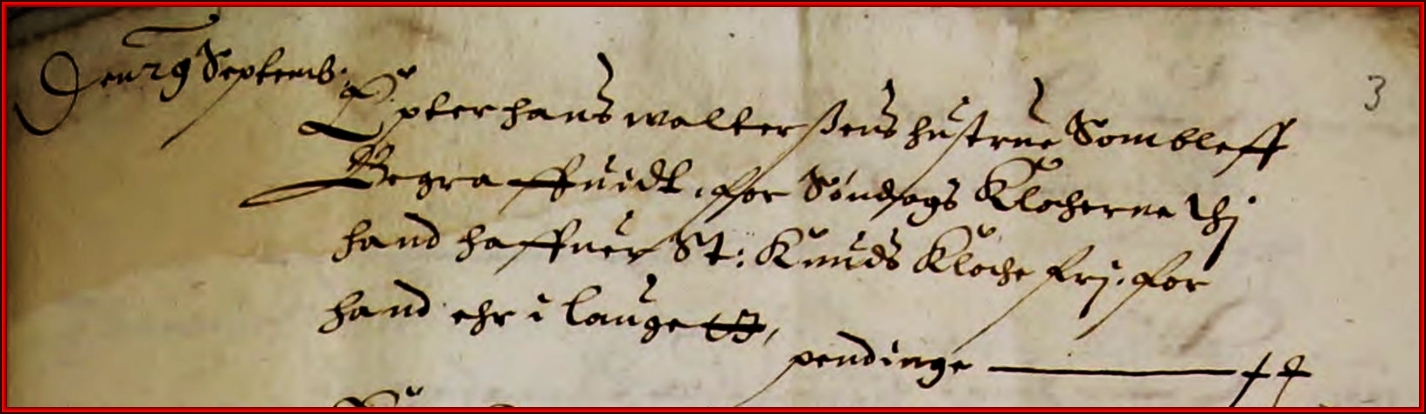 Den 29 Septemb:
Epter hans walterßens hustrue Som bleff
Begraffuidt, for Søndags Klockerne thj
hand haffuer St: Knuds Klocke frj, for
hand ehr i lauge
pendinge
3